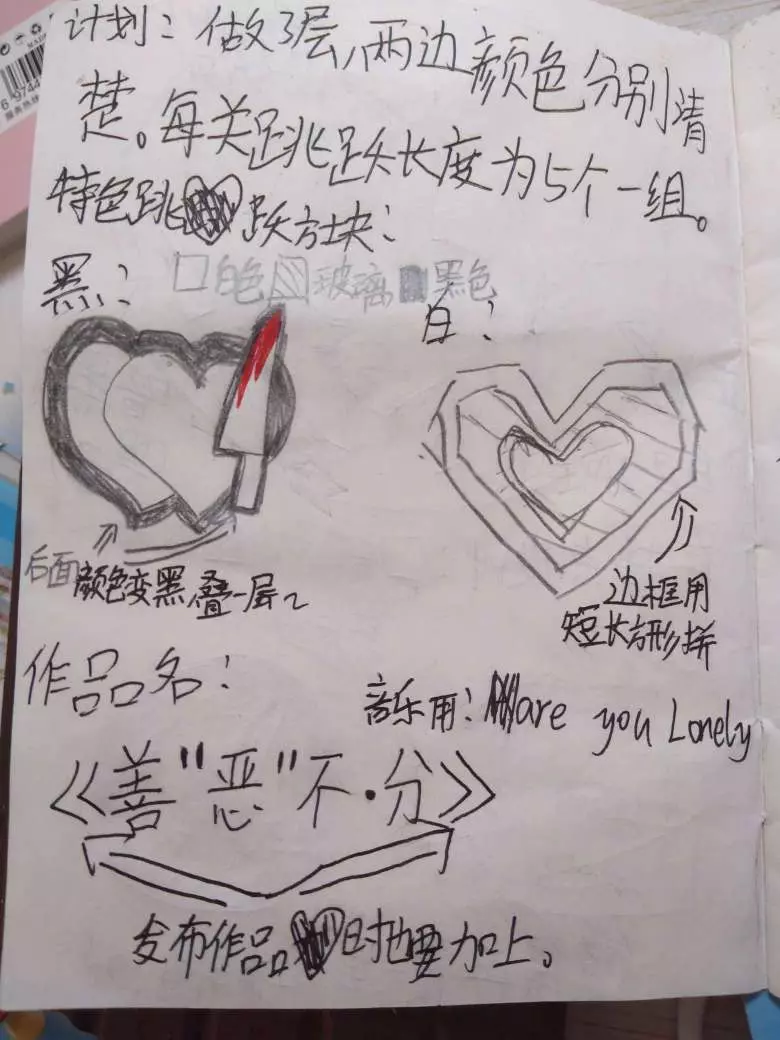 计划：做3层，两边颜色分别清
楚。每关跳跃长度为5个一组。
特色跳跃方块：
黑：
白色 玻璃 黑色
白：
后面颜色变黑，叠一层。
边框用
短长方形拼
作品名：
音乐用：are you Lonely
《善"恶"不·分》
发布作品时也要加上。